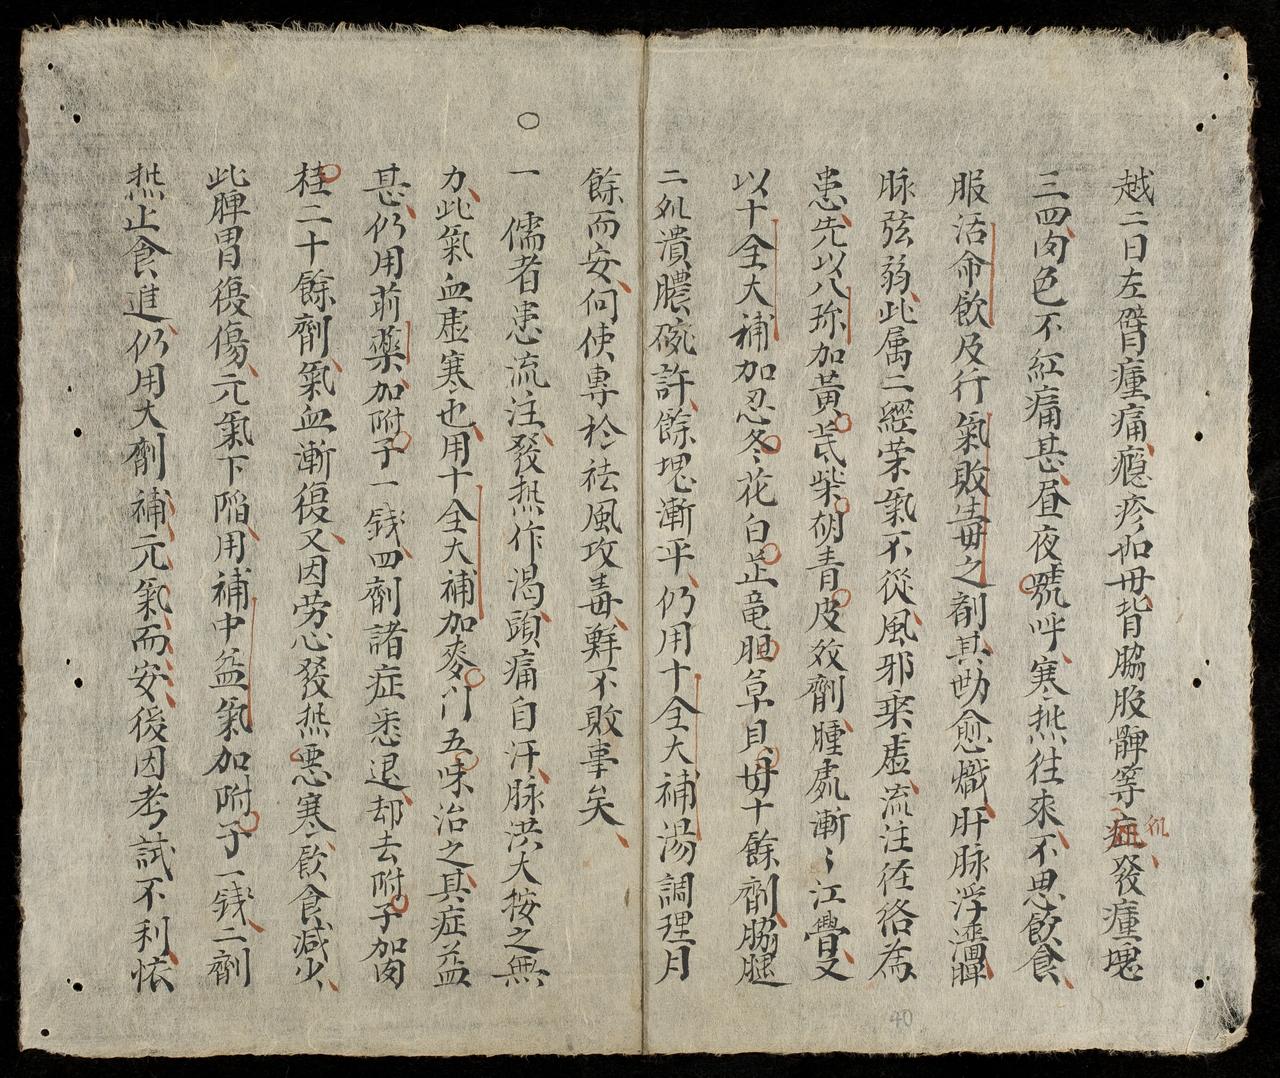 越二日左臂瘇痛瘾疹如毋背脇股髀等症發瘇塊
処
三四肉色不紅痛甚昼夜號呼寒热往来不思飲食
服活命飲及行氣敗毒之剤其勢愈熾肝脉浮濇脾
脉弦弱此属二經荣氣不從風邪乘虚流注径络為
患先以八珎加黃芪柴胡青皮数劑腫処漸〻红
以十全大補加忍冬花白芷竜胆草貝母十餘劑脇腿
二処潰膿碗許餘塊漸平仍用十全大補湯調理月
餘而安何使專於祛風攻毒鮮不敗事矣
○
一 儒者患流注發热作渴頭痛自汗脉洪大按之無
力此氣血虚寒也用十全大補加麥门五味治之其症益
甚仍用前藥加附子一錢四劑諸症悉退却去附子加肉
桂二十餘劑氣血漸復又因劳心發热悪寒飲食减少
此脾胃復傷元氣下陷用補中益氣加附子一錢二劑
热止食進仍用大劑補元氣而安後因考試不利依
40